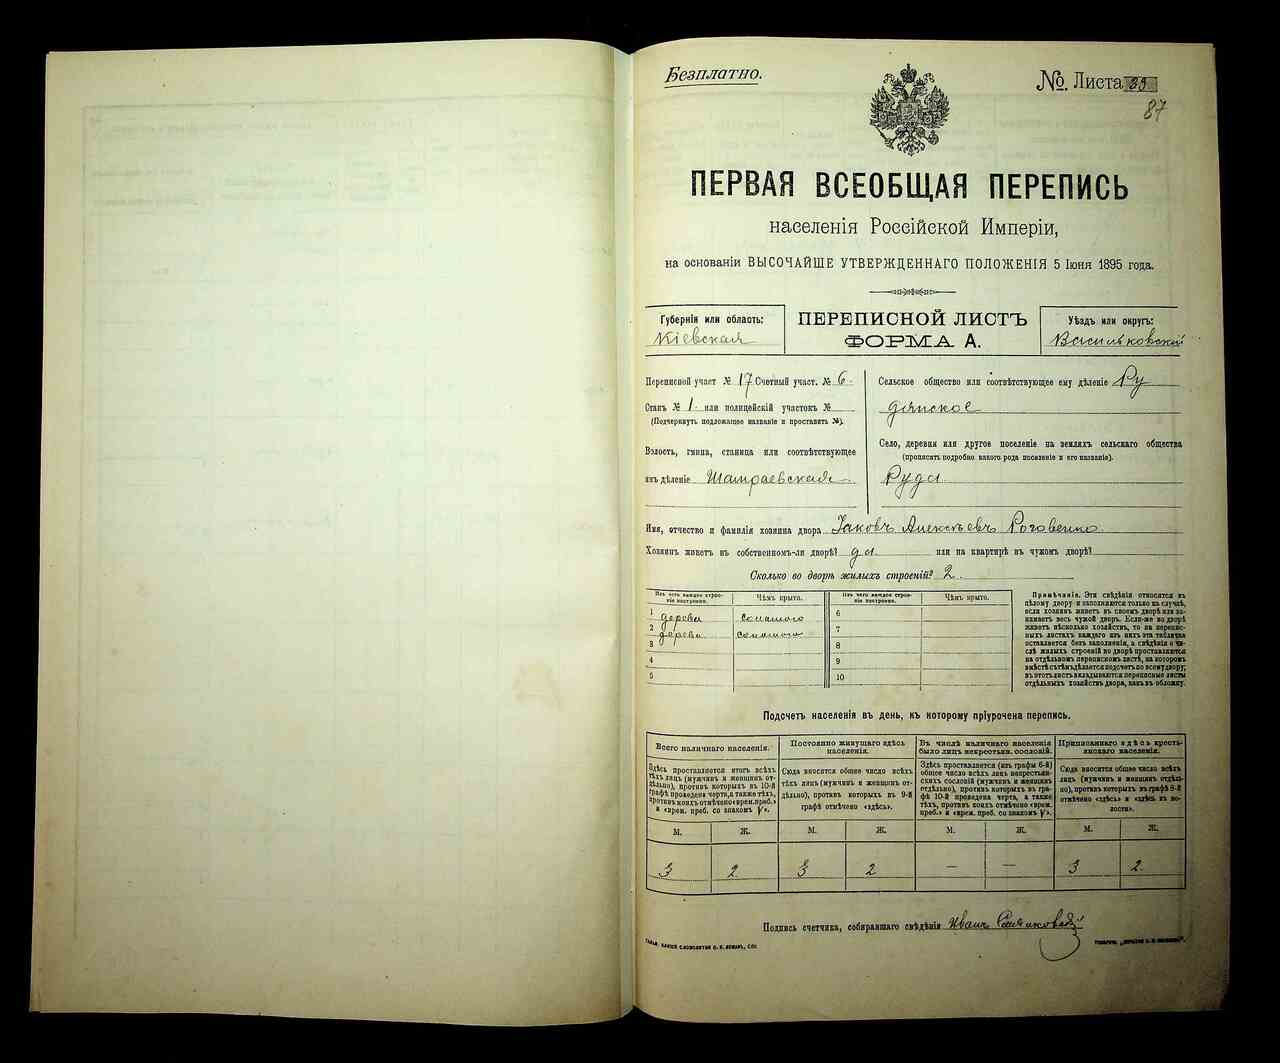 Безплатно.
№. Листа 39
87
ПЕРВАЯ ВСЕОБЩАЯ ПЕРЕПИСЬ
населенія Россійской Имперіи,
на основаніи ВЫСОЧАЙШЕ УТВЕРЖДЕННАГО ПОЛОЖЕНІЯ 5 Іюня 1895 года.
Губернія или область:
Кіевская
ПЕРЕПИСНОЙ ЛИСТЪ
ФОРМА А.
Уѣздъ или округъ:
Васильковскій
Переписной участ № 17 Счетный участ. № 6.
Станъ № 1. или полицейскій участокъ №
(Подчеркнуть подлежащее названіе и проставить №).
Волость, гмина, станица или соотвѣтствующее
имъ дѣленіе Шамраевская
Сельское общество или соотвѣтствующее ему дѣленіе Ру
дянское
Село, деревня или другое поселеніе на земляхъ сельскаго общества
(прописать подробно какого рода поселеніе и его названіе).
Руда.
Имя, отчество и фамилія хозяина двора Іаковъ Алексѣевъ Роговенко.
Хозяинъ живетъ въ собственномъ-ли дворѣ? да или на квартирѣ въ чужомъ дворѣ?
Сколько во дворѣ жилыхъ строеній? 2.
Изъ чего каждое строе-
ніе построено.
Чѣмъ крыто.
Изъ чего каждое строе-
ніе построено.
Чѣмъ крыто.
1 дерева соломою 6
2 дерева соломою 7
3 8
4 9
5 10
Примѣчаніе. Эти свѣдѣнія относятся къ
цѣлому двору и заполняются только въ случаѣ,
если хозяинъ живетъ въ своемъ дворѣ или за-
нимаетъ весь чужой дворъ. Если-же во дворѣ
живетъ нѣсколько хозяйствъ, то на перепис-
ныхъ листахъ каждаго изъ нихъ эта табличка
оставляется безъ заполненія, а свѣдѣнія о чи-
слѣ жилыхъ строеній во дворѣ проставляются
на отдѣльномъ переписномъ листѣ, на которомъ
вмѣстѣ съ тѣмъ дѣлается подсчетъ по всему двору;
въ этотъ листъ вкладываются переписные листы
отдѣльныхъ хозяйствъ двора, какъ въ обложку.
Подсчетъ населенія въ день, къ которому пріурочена перепись.
Всего наличнаго населенія.
Здѣсь проставляется итогъ всѣхъ
тѣхъ лицъ (мужчинъ и женщинъ от-
дѣльно), противъ которыхъ въ 10-й
графѣ проведена черта, а также тѣхъ,
противъ коихъ отмѣчено «врем. преб.»
и «врем. преб. со знакомъ V».
Постоянно живущаго здѣсь
населенія.
Сюда вносится общее число всѣхъ
тѣхъ лицъ (мужчинъ и женщинъ от-
дѣльно), противъ которыхъ въ 9-й
графѣ отмѣчено «здѣсь».
Въ числѣ наличнаго населенія
было лицъ некрестьян. сословій.
Здѣсь проставляется (изъ графы 6-й)
общее число всѣхъ лицъ некрестьян-
скихъ сословій (мужчинъ и женщинъ
отдѣльно), противъ которыхъ въ гра-
фѣ 10-й проведена черта, а также
тѣхъ, противъ коихъ отмѣчено «врем.
преб.» и «врем. преб. со знакомъ V».
Приписаннаго здѣсь кресть-
янскаго населенія.
Сюда вносится общее число всѣхъ
лицъ (мужчинъ и женщинъ отдѣль-
но), противъ которыхъ въ графѣ 8-й
отмѣчено «здѣсь» и «здѣсь въ во-
лости».
М. Ж. М. Ж. М. Ж. М. Ж.
3 2 3 2 — — 3 2.
Подпись счетчика, собиравшаго свѣдѣнія Иванъ